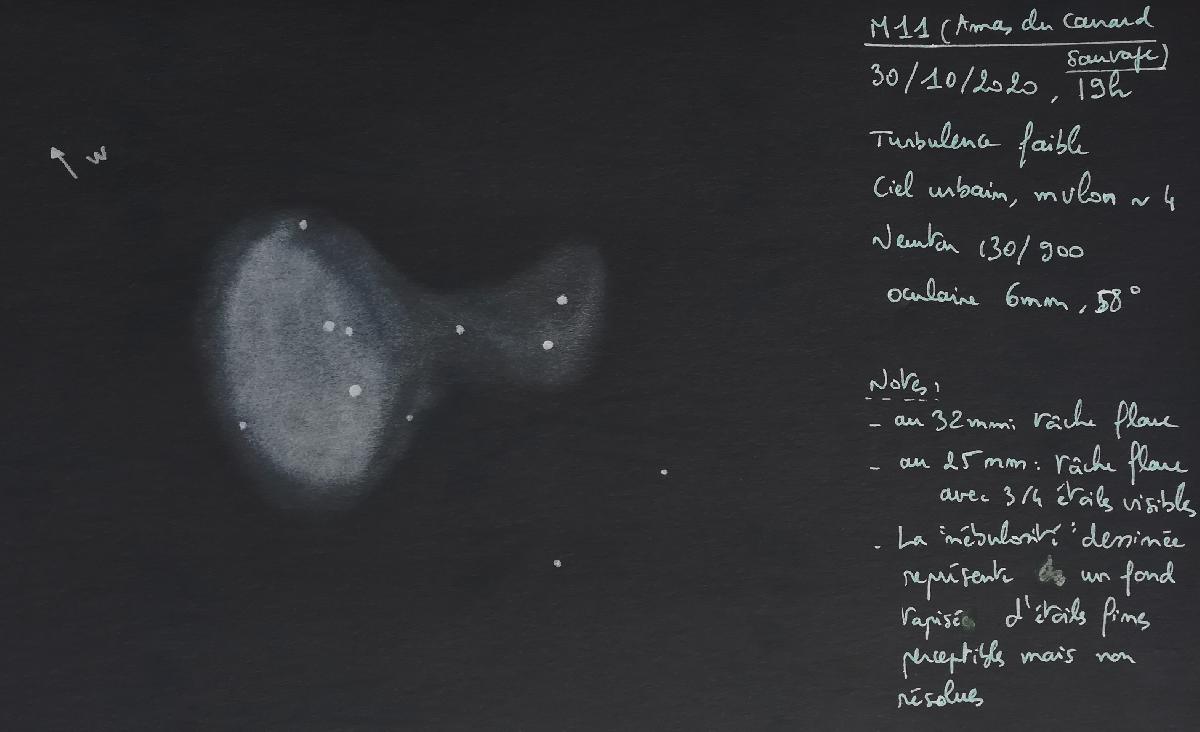 W
M11 (Amas du Canard
Sauvage)
30/10/2020, 19h
Turbulence faible
Ciel urbain, mvlon ~ 4
Newton 130/900
oculaire 6mm, 58°
Notes:
- au 32mm: tâche floue
- au 25mm: tâche floue
avec 3/4 étoiles visibles
- La "nébulosité" dessinée
représente un fond
tapissé d'étoiles fines
perceptibles mais non
résolues